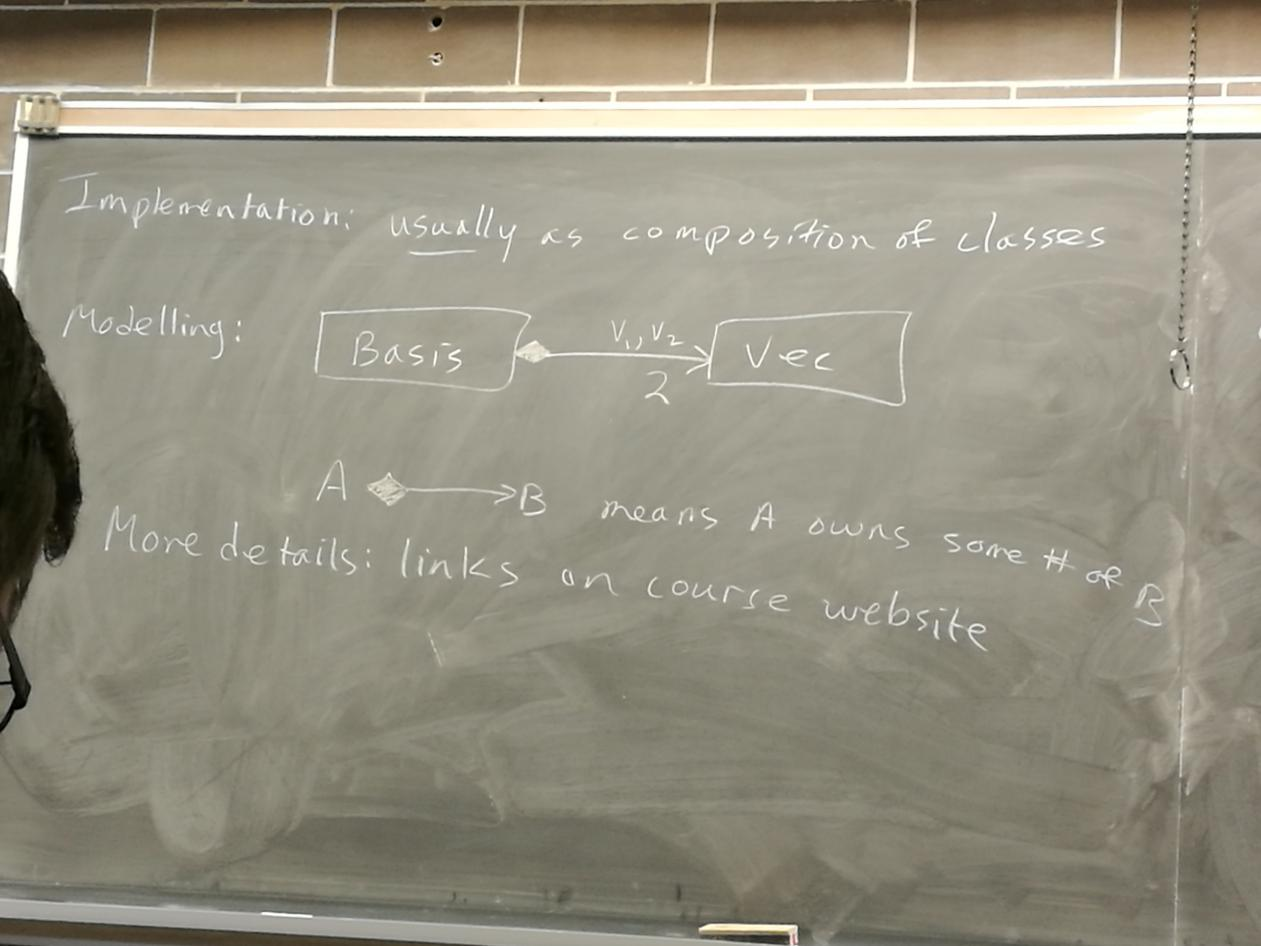 Implementation: usually as composition of classes
Modelling: Basis V₁, V₂ 2 Vec
A B means A owns some # of B
More details: links on course website